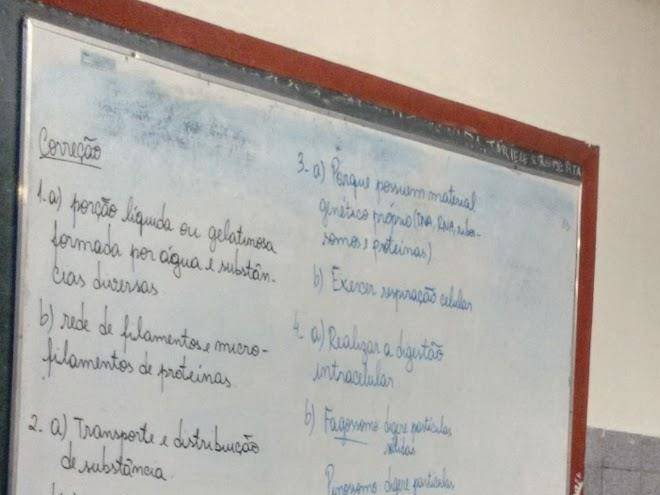 Correção
1. a) porção líquida ou gelatinosa
formada por água e substân-
cias diversas
b) rede de filamentos e micro-
filamentos de proteínas
2. a) Transporte e distribuição
de substância
3. a) Porque possuem material
genético próprio (DNA, RNA, ribos-
somos e proteínas)
b) Exercer respiração celular
4. a) Realizar a digestão
intracelular
b) Fagossomo digere partículas
sólidas
Pinossomo digere partículas